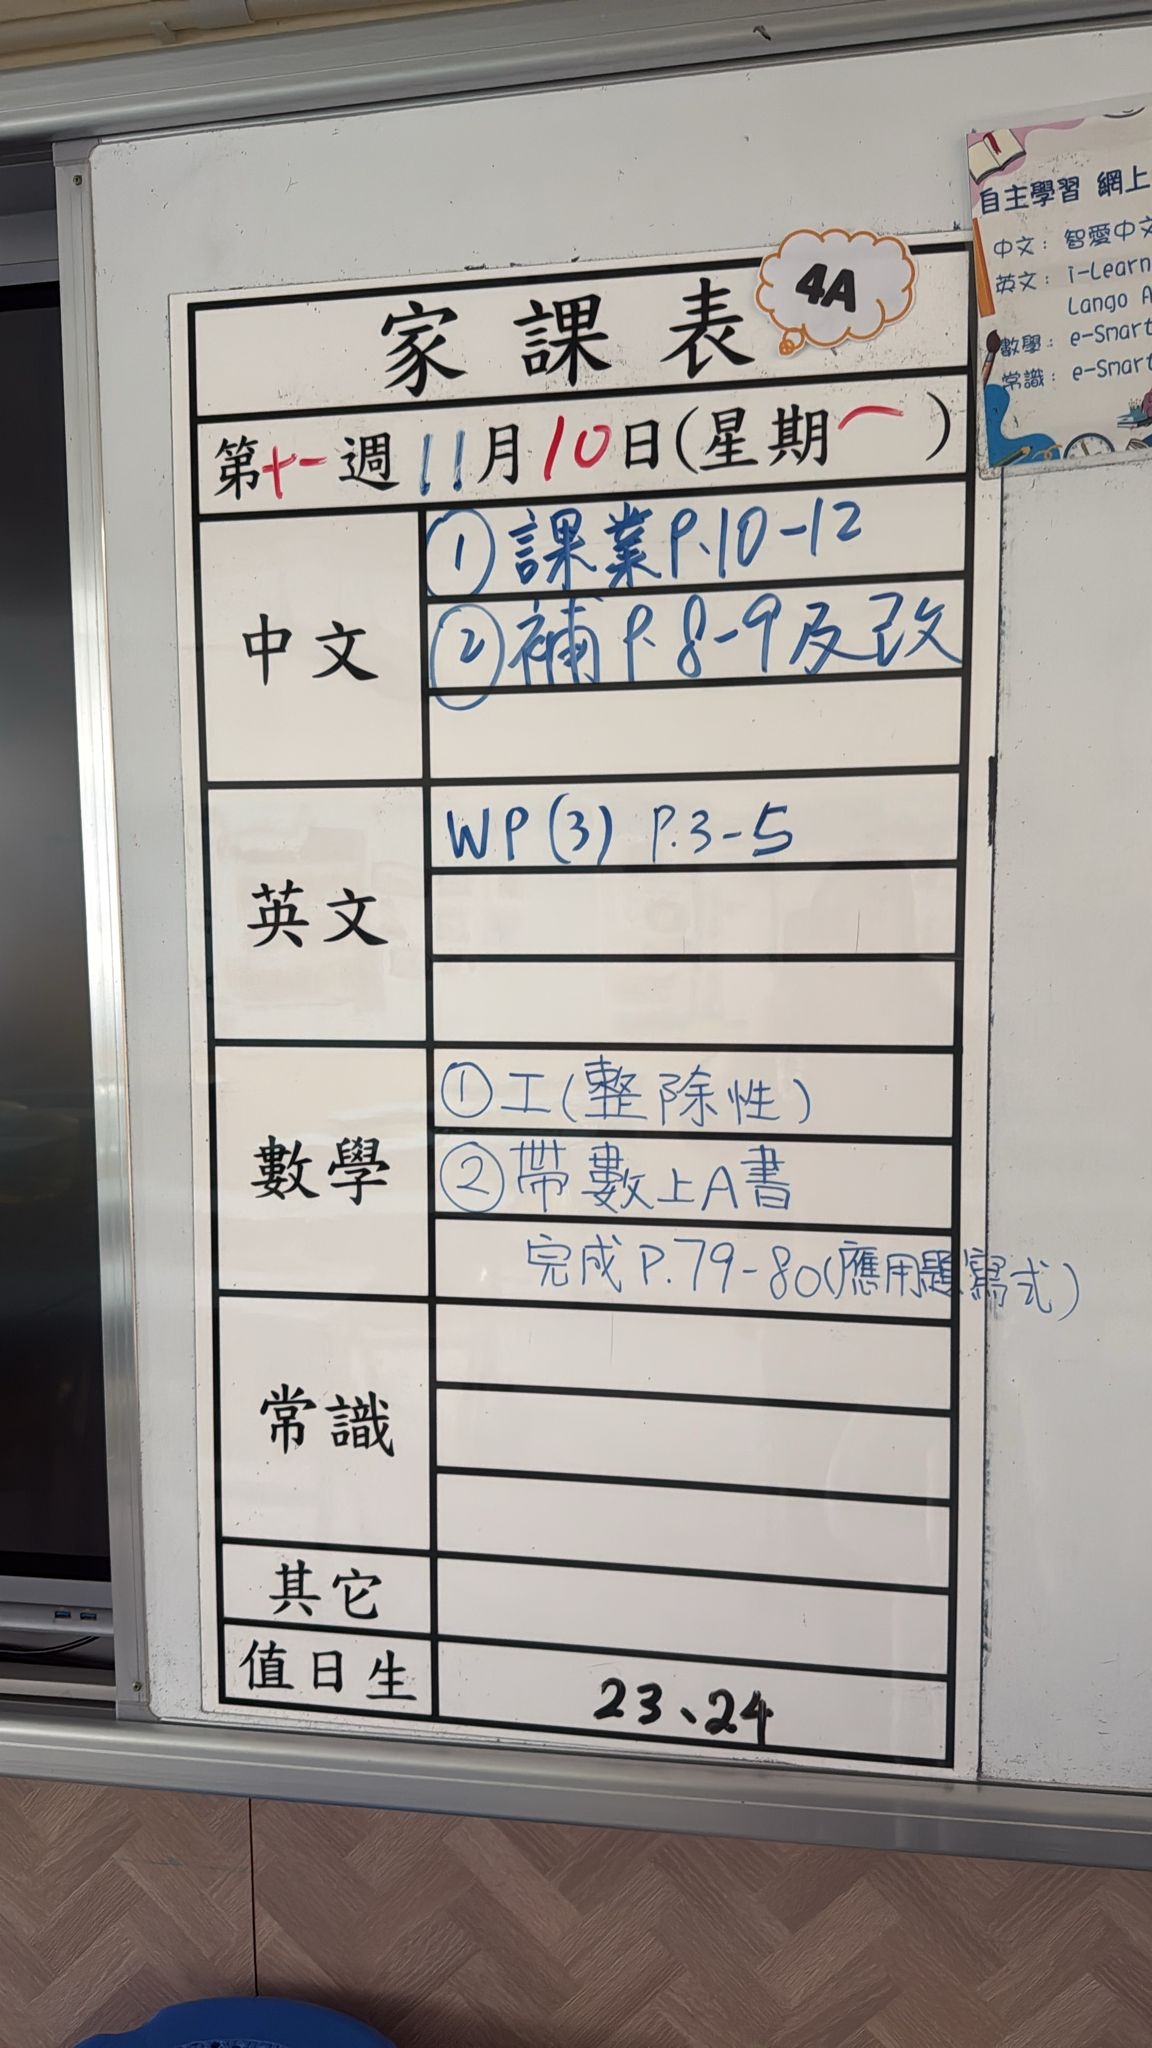 自主學習 網上
中文：智愛中文
英文：i-Learn
Lango A
數學：e-Smart
常識：e-Smart
4A
家課表
第十一週11月10日(星期一)
中文
①課業P.10-12
②補P.8-9及改
英文
WP(3) P.3-5
數學
①工(整除性)
②帶數上A書
完成P.79-80(應用題寫式)
常識
其它
值日生
23、24